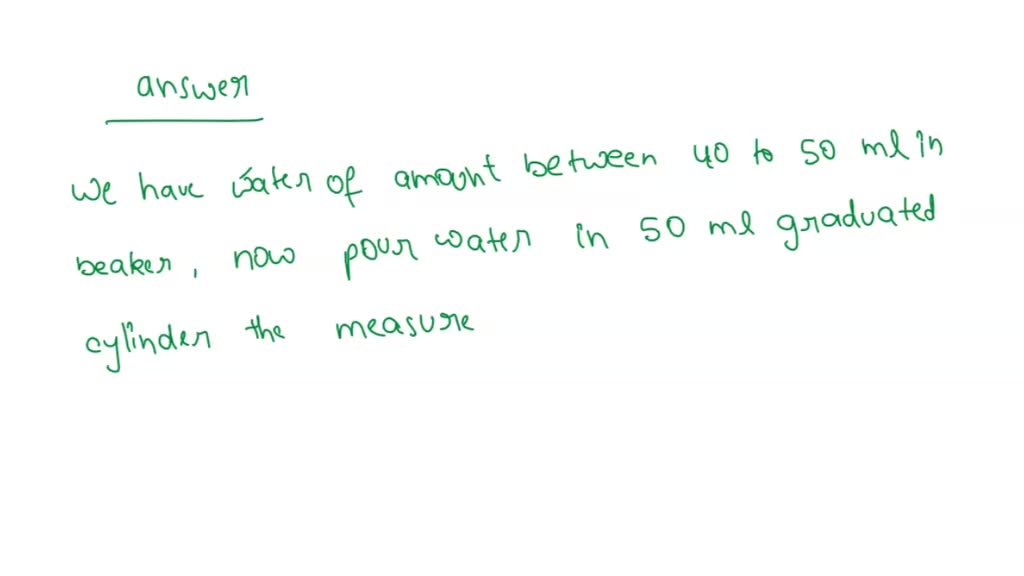 answer
We have water of amount between 40 to 50 ml in
beaker, now pour water in 50 ml graduated
cylinder the measure